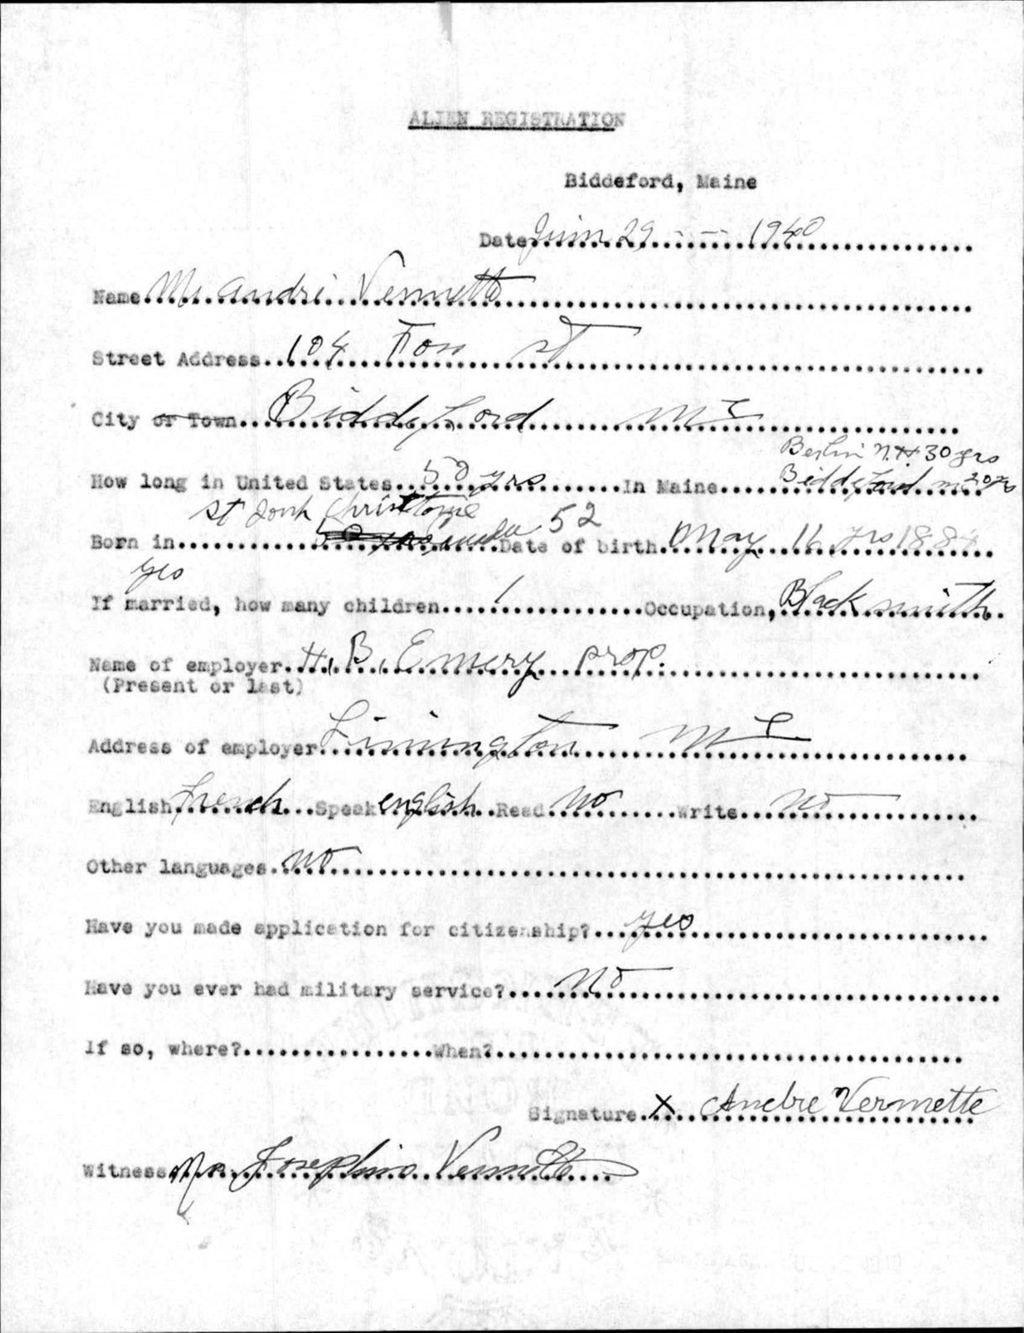 ALIEN REGISTRATION
Biddeford, Maine
Date June 29 - - - 1940
Name Mr. Andri Vermette
Street Address 104 Foss st
City or Town Biddyford Me
Berlin N.H 30 yrs
How long in United States 50 yrs In Maine Biddyford m 20 yrs
St Christome
Born in Date of birth 52 May 16 yrs 1884
yes
If married, how many children 1 Occupation, Black smith
Name of employer H. B. Emery prop.
(Present or last)
Address of employer Limington Me
English French Speak english Read No Write no
Other languages no
Have you made application for citizenship? yes
Have you ever had military service? no
If so, where? When?
Signature X Andre Vermette
Witness Josephine Vermette